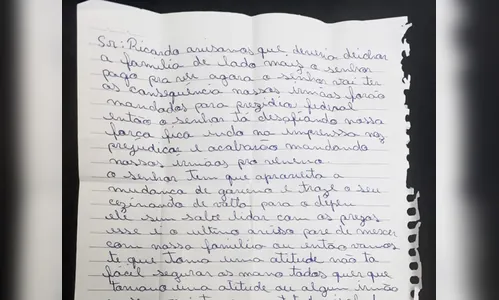 Sr: Ricardo avisamos que deveria deichar
a familia de lado mais o senhor
pago pra ve agora o senhor vai ter
as consequência nossas irmãos forão
mandados para prezidio federal
então o senhor tá desafiando nossa
força fica indo na imprenssa noz
prejudica e acabarão mandando
nossos irmãos pro veneno.
O senhor tem que aproveita a
mudança de governo e traze o seu
de volta para o Depen
ele sim sabe lidar com os prezos
esse é o ultimo aviso pare de mexer
com nossa familia ou então vamos
te que toma uma atitude não tá
facil segurar as mano todos quer que
tomamo uma atitude ou algum irmão